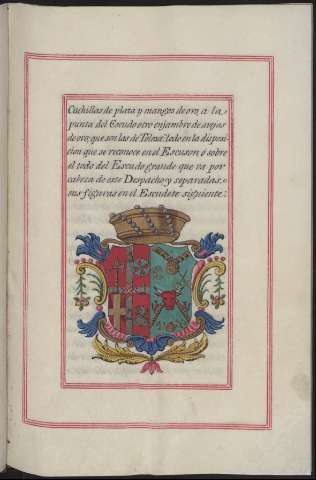 Cuchillas de plata y mangos de oro, a la
punta del Escudo otro enjambre de avejas
de oro, que son las de Tolosa: todo en la disposi-
cion que se reconoce en el Escuson, ó sobre
el todo del Escudo grande que va por
cabeza de este Despacho, y separadas
sus figuras en el Escudete siguiente: